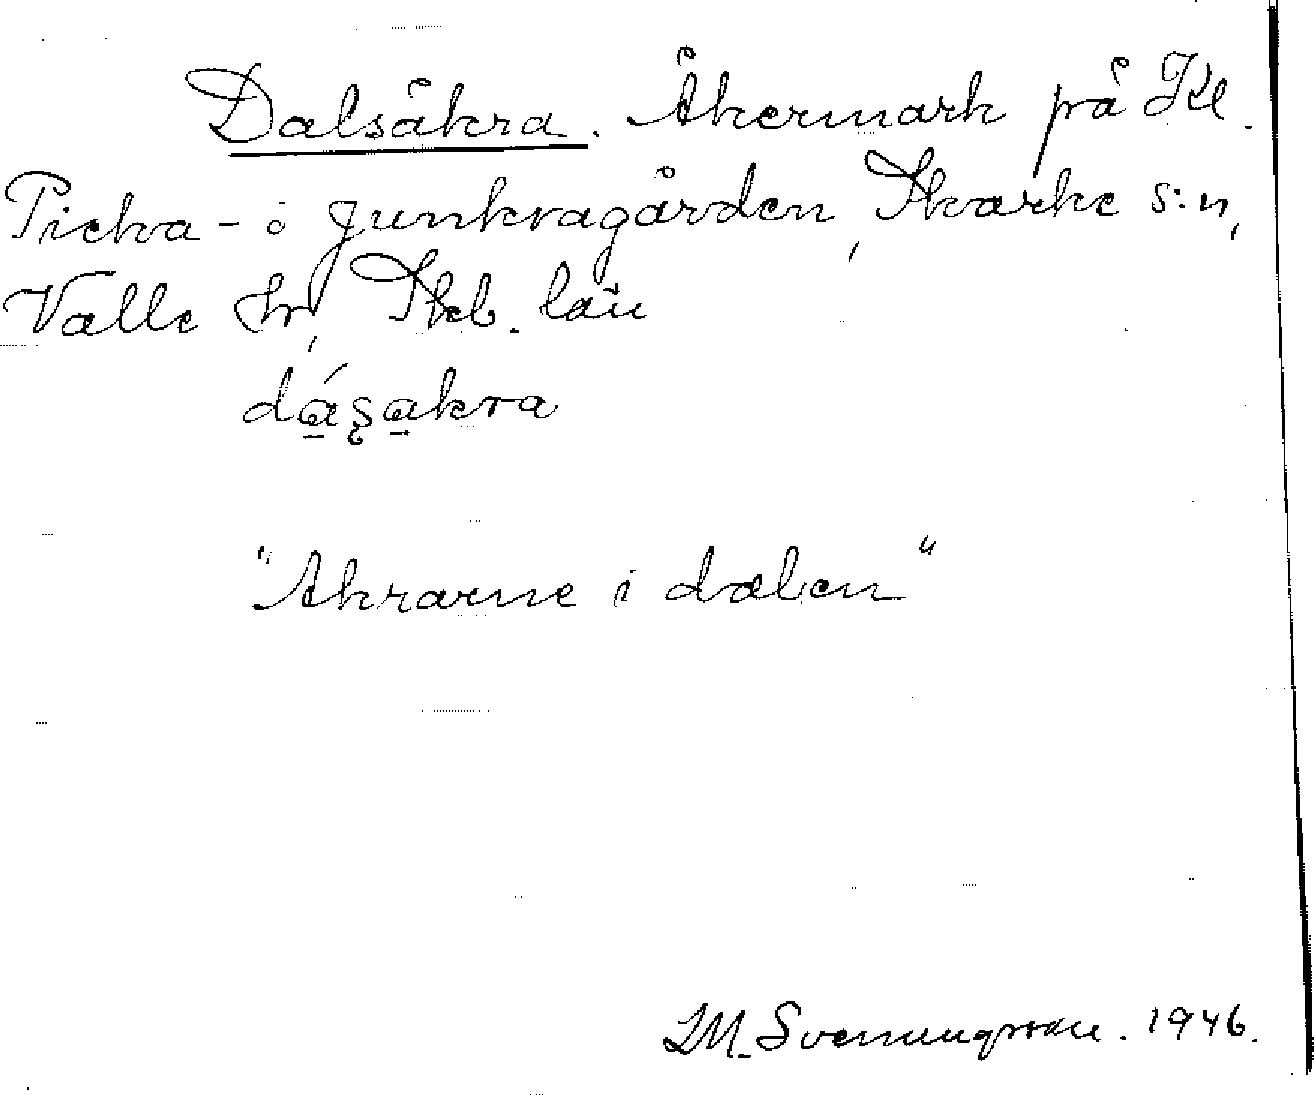 Dalsåkra. Åkermark på Kl.
Picka - i Junkragården, Skarke s:n,
Valle hd, Skb. län
dásakra
"Akrarne i dalen"
I.M. Svenungsson. 1946.